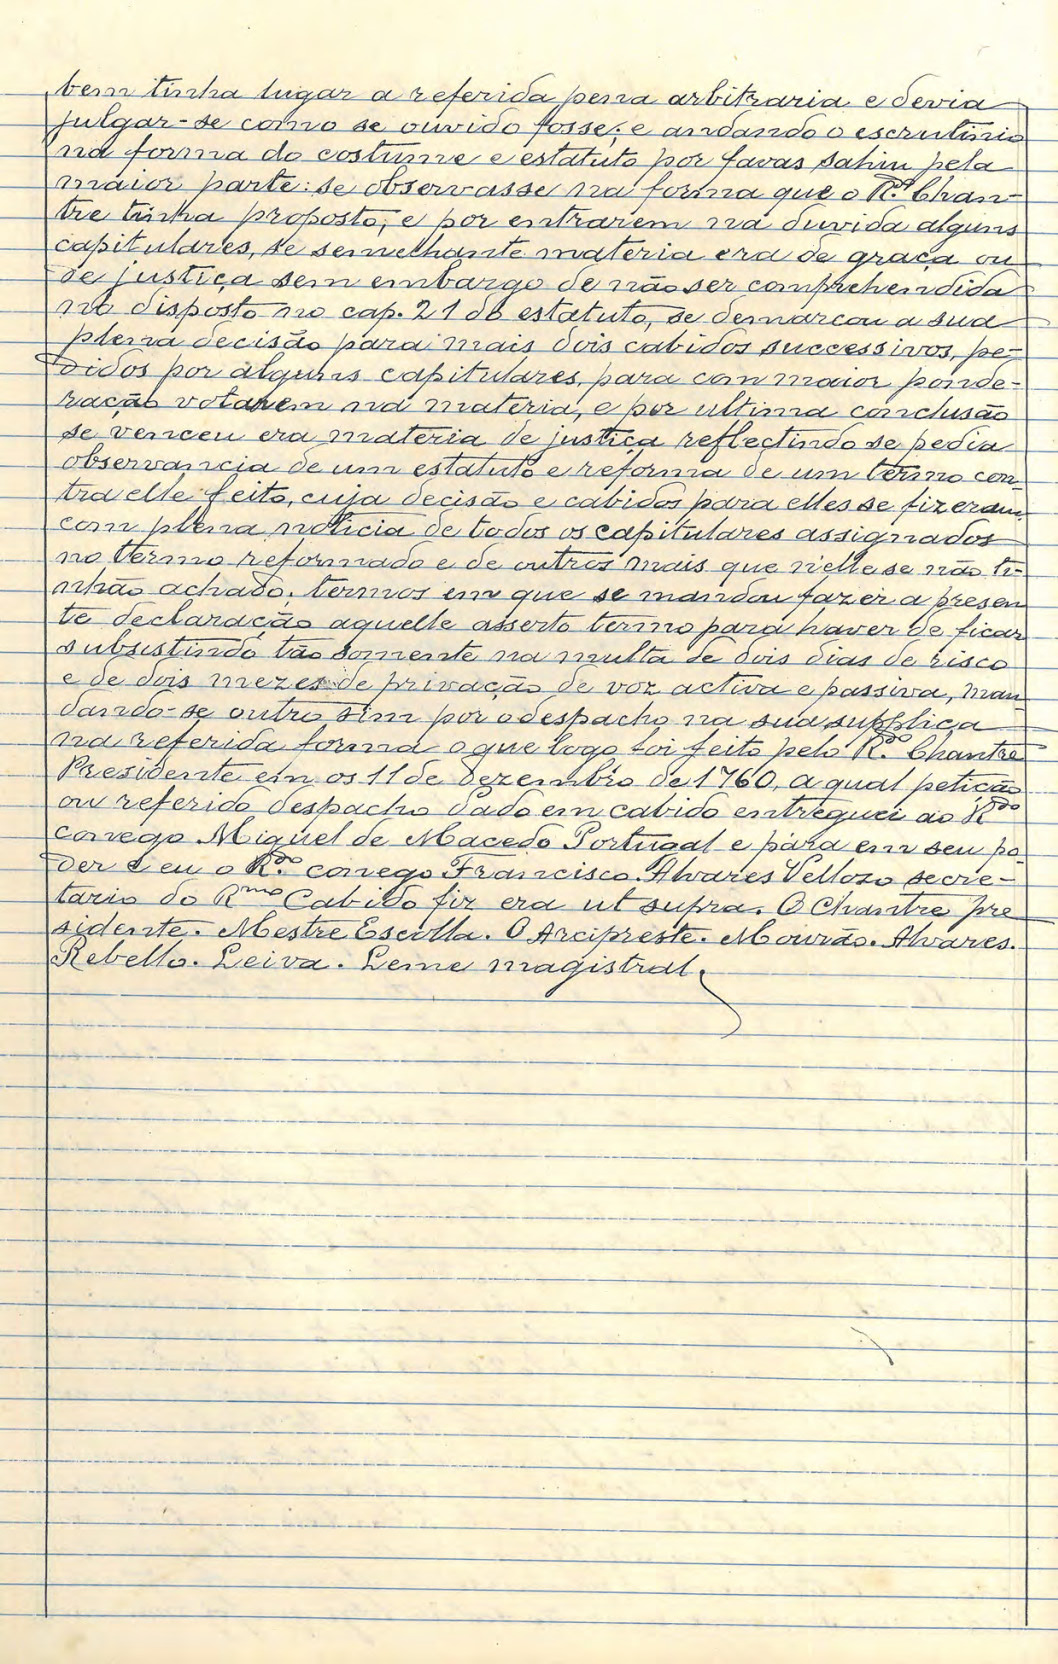 bem tinha lugar a referida pena arbitraria e devia
julgar-se como se ouvido fosse; e andando o escrutinio
na forma do costume e estatuto por favas sahiu pela
maior parte: se observasse na forma que o R.do Chan-
tre tinha proposto; e por entrarem na duvida alguns
capitulares, se semelhante materia era de graça ou
de justiça sem embargo de não ser comprehendida
no disposto no cap. 21 do estatuto, se demarcou a sua
plena decisão para mais dois cabidos successivos, pe-
didos por alguns capitulares, para com maior ponde-
ração votarem na materia, e por ultima conclusão
se venceu era materia de justiça reflectindo se pedia
observancia de um estatuto e reforma de um termo con-
tra elle feito, cuja decisão e cabidos para elles se fizeram
com plena noticia de todos os capitulares assignados
no termo reformado e de outros mais que n'elle se não ti-
nhão achado; termos em que se mandou fazer a presen
te declaração aquelle asserto termo para haver de ficar
subsistindo tão somente na multa de dois dias de risco
e de dois mezes de privação de voz activa e passiva, man
dando-se outro sim por o despacho na sua supplica
na referida forma o que logo foi feito pelo R.do Chantre
Presidente em os 11 de dezembro de 1760, a qual petição
ou referido despacho dado em cabido entreguei ao R.do
conego Miguel de Macedo Portugal e pára em seu po-
der e eu o R.do conego Francisco Alvares Vellozo secre-
tario do R.mo Cabido fiz era ut supra. O Chantre pre
sidente. Mestre Escolla. O Arcipreste. Mourão. Alvares.
Rebello. Leiva. Leme magistral.